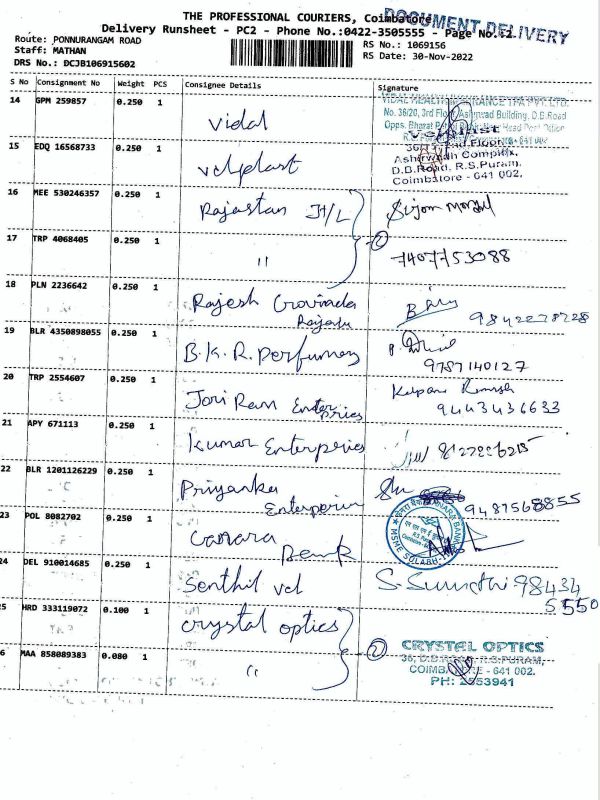 THE PROFESSIONAL COURIERS, Coimbatore
DOCUMENT DELIVERY
Delivery Runsheet - PC2 - Phone No.:0422-3505555 - Page No.:2
Route: PONNURANGAM ROAD
RS No.: 1069156
Staff: MATHAN
RS Date: 30-Nov-2022
DRS No.: DCJB106915602
S No Consignment No Weight PCS Consignee Details Signature
14 GPM 259857 0.250 1 Vidal
No. 36/20, 3rd Floor, Ashirwad Building, D.B.Road
15 EDQ 16568733 0.250 1 velplast
Ashirwadh Complex,
D.B.Road, R.S.Puram,
Coimbatore - 641 002.
16 MEE 530246357 0.250 1 Rajastan J+/L
17 TRP 4068405 0.250 1 " 2 7407753088
18 PLN 2236642 0.250 1 Rajesh Govinda
9842278228
19 BLR 4350898055 0.250 1 B.K.R. perfumes
9787140127
20 TRP 2554607 0.250 1 Jori Ram Enterprises
9443436633
21 APY 671113 0.250 1 Kumar Enterperies
22 BLR 1201126229 0.250 1 Priyanka
Enterperies 9487568855
23 POL 8082702 0.250 1 Canara
Bank
24 DEL 910014685 0.250 1 Senthil vel S. Sumathi 98434
5550
25 HRD 333119072 0.100 1 crystal optics
CRYSTAL OPTICS
36, D.B.ROAD, R.S.PURAM,
26 MAA 858089383 0.080 1 " 2
COIMBATORE - 641 002.
PH: 2553941